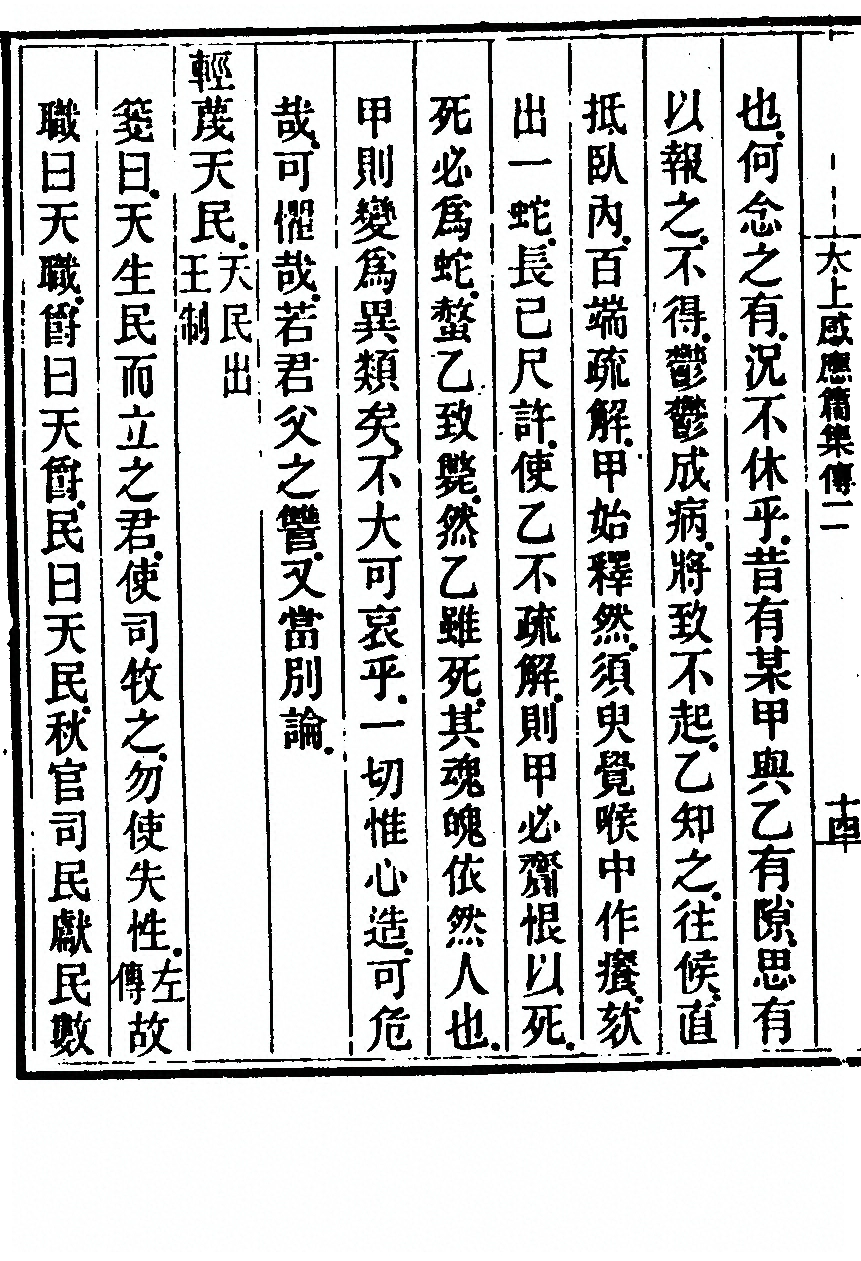 太上感應篇集傳二
十四
也何念之有況不休乎昔有某甲與乙有隙思有
以報之不得鬱鬱成病將致不起乙知之往候直
抵臥內百端疏解甲始釋然須臾覺喉中作癢欬
出一蛇長已尺許使乙不疏解則甲必齎恨以死
死必爲蛇螫乙致斃然乙雖死其魂魄依然人也
甲則變爲異類矣不大可哀乎一切惟心造可危
哉可懼哉若君父之讐又當別論
輕蔑天民天民出王制
箋曰天生民而立之君使司牧之勿使失性左傳故
職曰天職爵曰天爵民曰天民秋官司民獻民數